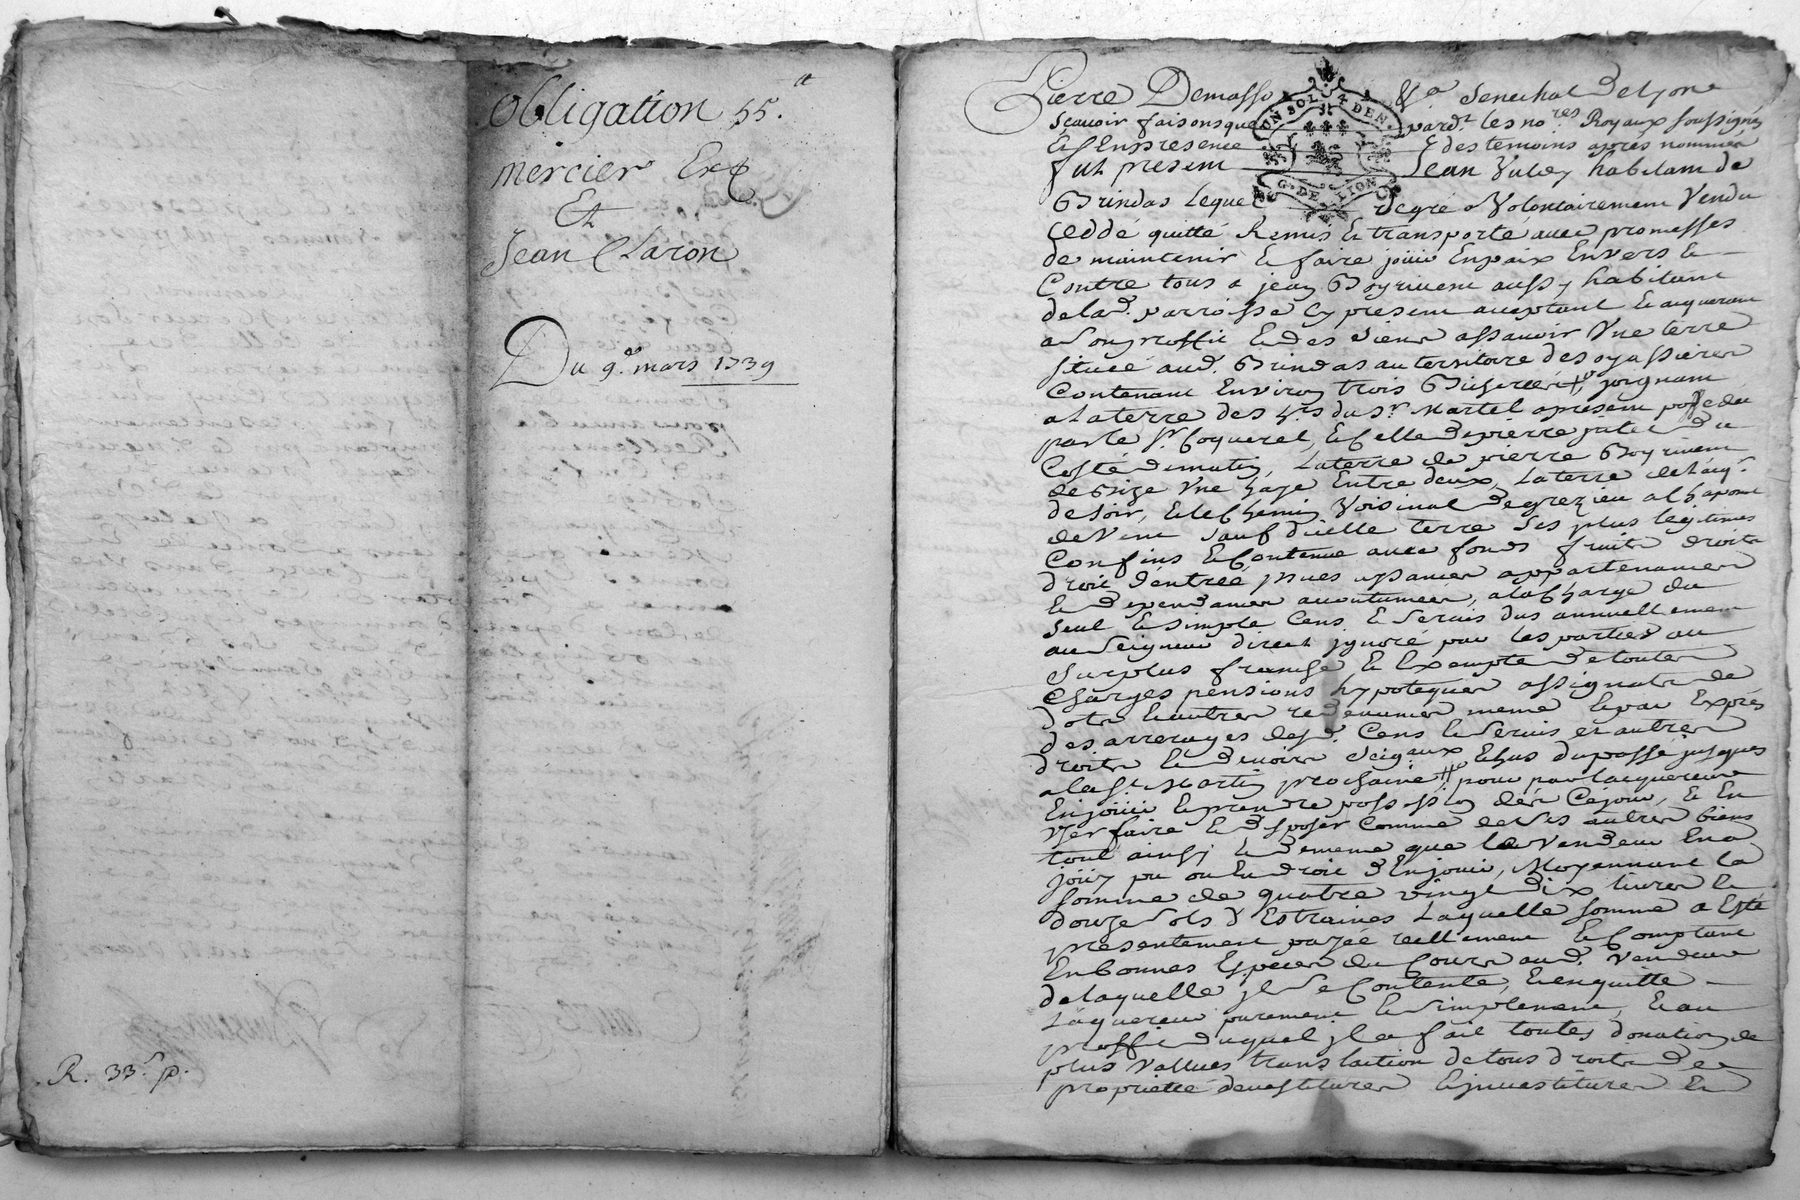 obligation 55.ᵗᵗ
mercier
Et
Jean Claron
Du 9.ᵉ mars 1739
R. 33.ˢ p.
Pierre Demasso &ᵃ Senechal de Lyon
scavoir faisons que pard.ᵗ les no.ʳᵉˢ Royaux soussignés
Et En presence des temoins apres nommés
fut present Jean habitant de
Grindas Lequel degré & Volontairement Vendu
ceddé quitté Remis & transporté avec promesses
de maintenir & faire jouir En paix Envers &
Contre tous a jean Boyrivent aussy habitant
de lad. parroisse Cy present acceptant & aquerant
a son proffit & des siens assavoir Une terre
située aud. Grindas au territoire des
Contenant Environ trois Bicherées joignant
a La terre des h.ʳˢ du S.ʳ Martel apresent possedée
par le S.ʳ Coquerel, & Celle de pierre du
Costé de matin, La terre de pierre Boyrivent
de Bize Une haye Entre deux, La terre de l'aq.ʳ
de soir, & le Chemin Voisinal de grezieu a Chaponost
de Vent sauf d'icelle terre Ses plus legitimes
Confins & Contenue avec fonds fruits droits
droit d'entrée issues aisances appartenances
& dependances accoutumées, a la Charge du
seul & simple Cens & Servis dus annuellement
au Seigneur direct ignoré par les parties au
Surplus franche & Exempte de toutes
Charges pensions hypoteques assignats de
dots & autres redevances meme & par Exprés
des arrerages desd. Cens & Servis et autres
droits & devoirs Seig.aux Echus du passé jusques
a la S.ᵗ Martin prochaine, pour par l'acquereur
En jouir & prendre possession dés Cejour, & En
Yer faire & disposer Comme de ses autres biens
tout ainsy & de meme que le Vendeur En a
jouy pu ou Eu droit d'En jouir, Moyennant la
somme de quatre vingt dix livres &
douze sols d'Estraines Laquelle somme a Esté
presentement payée reellement & Comptant
En bonnes Especes du Cours aud. Vendeur
de laquelle jl se Contente, & en quitte
L'aquereur purement & simplement, & au
proffit duquel jl a fait toutes donation de
plus Vallues translation de tous droits de
proprieté devestitures & investitures En